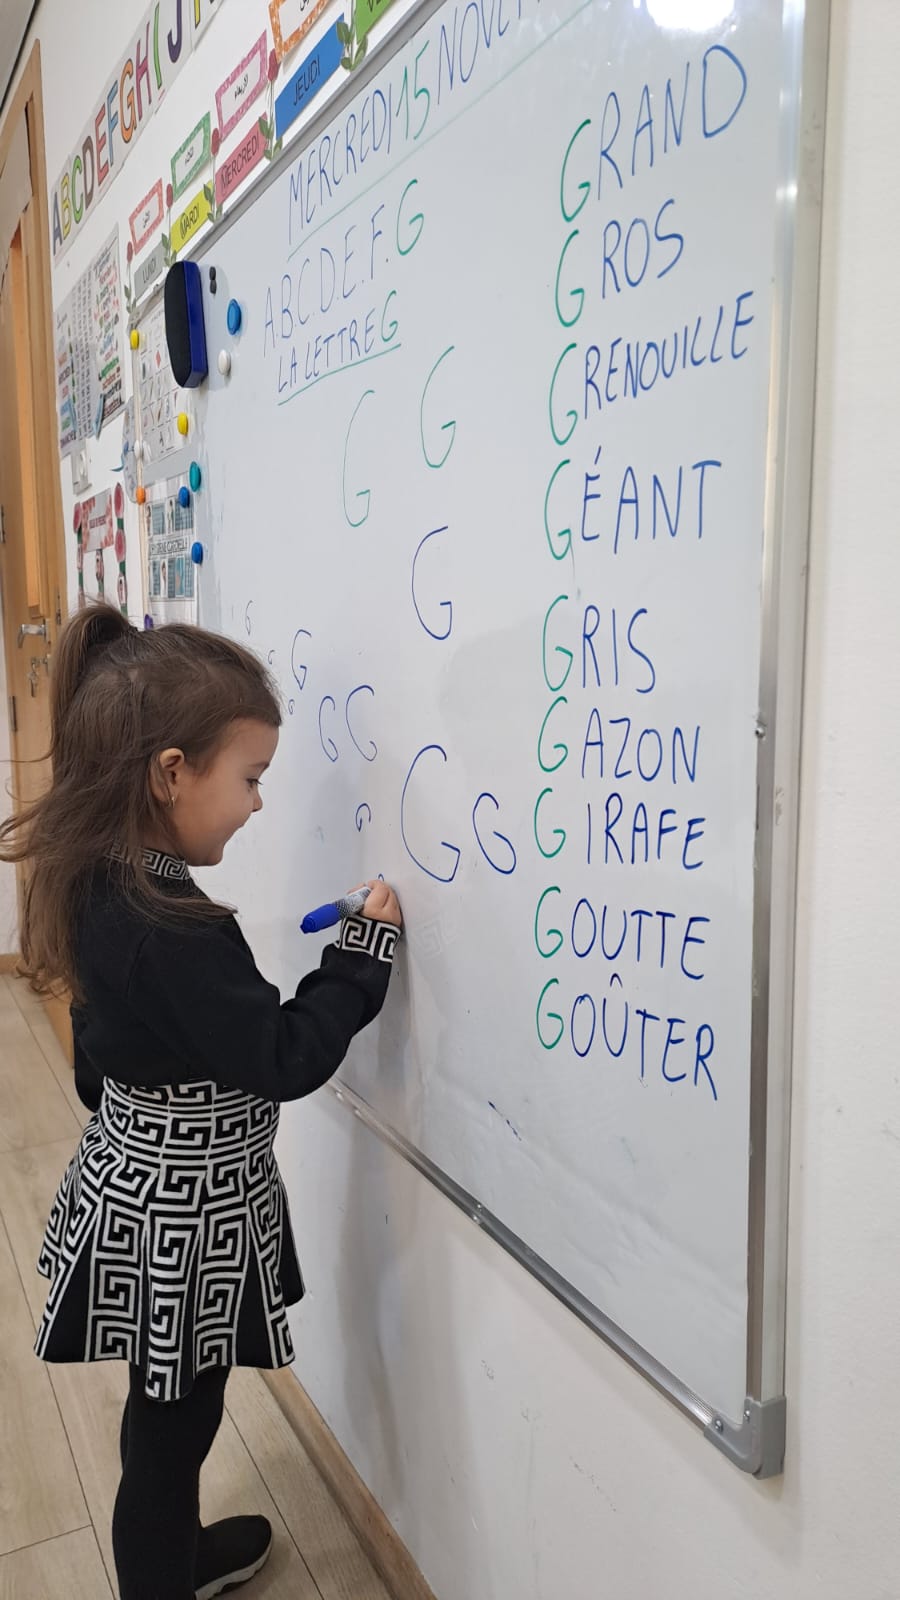 ABCDEFGHIJ
JEUDI
MERCREDI
MARDI
LUNDI
MERCREDI 15
A.B.C.D.E.F.G
LA LETTRE G
G G
G
G
G
G G
G
G G
GRAND
GROS
GRENOUILLE
GÉANT
GRIS
GAZON
GIRAFE
GOUTTE
GOÛTER